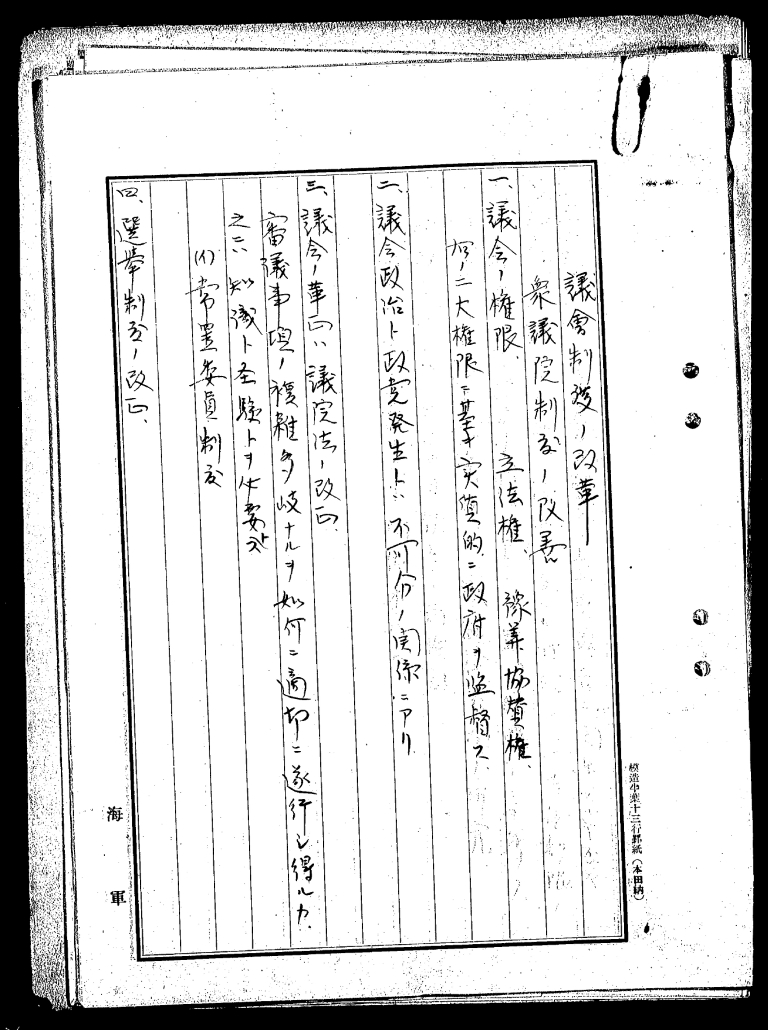 議會制度ノ改革
衆議院制度ノ改善
一、議会ノ権限、 立法権、 豫算協賛権、
何ノ二大権限ニ基キ実質的ニ政府ヲ監督ス
二、議会政治ト政党発生トハ不可分ノ関係ニアリ
三、議会ノ革正ハ議院法ノ改正、
審議事項ノ複雑多岐ナルヲ如何ニ適切ニ遂行シ得ルカ、
之ニハ知識ト圣験トヲ必要トス
(イ)常置委員制度
四、選挙制度ノ改正、
海軍
模造中葉十三行罫紙(本田納)